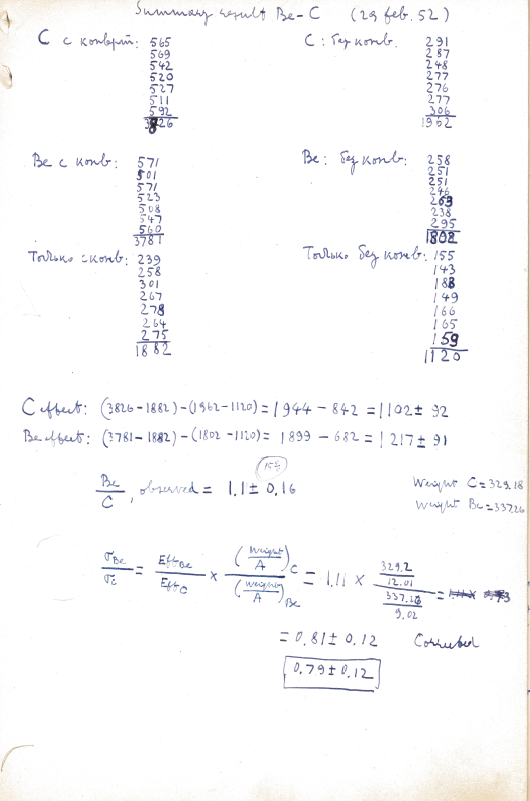 Summary result Be-C (29 feb. 52)
C с конверт: 565
569
542
520
527
511
592
3826
C: без конв. 291
287
248
277
276
277
306
1962
Be с конв: 571
501
571
523
508
547
560
3781
Be: без конв: 258
251
251
246
263
238
295
1802
Только с конв: 239
258
301
267
278
264
275
1882
Только без конв: 155
143
183
149
166
165
159
1120
C effect: (3826-1882)-(1962-1120)=1944-842=1102±92
Be effect: (3781-1882)-(1802-1120)=1899-682=1217±91
15%
Be/C, observed = 1.1±0.16
Weight C=329.18
Weight Be=337.26
σBe/σC = EffBe/EffC × (weight/A)C/(weight/A)Be = 1.11 × 329.2/12.01/337.26/9.02 =
= 0.81±0.12 Corrected
0.79±0.12